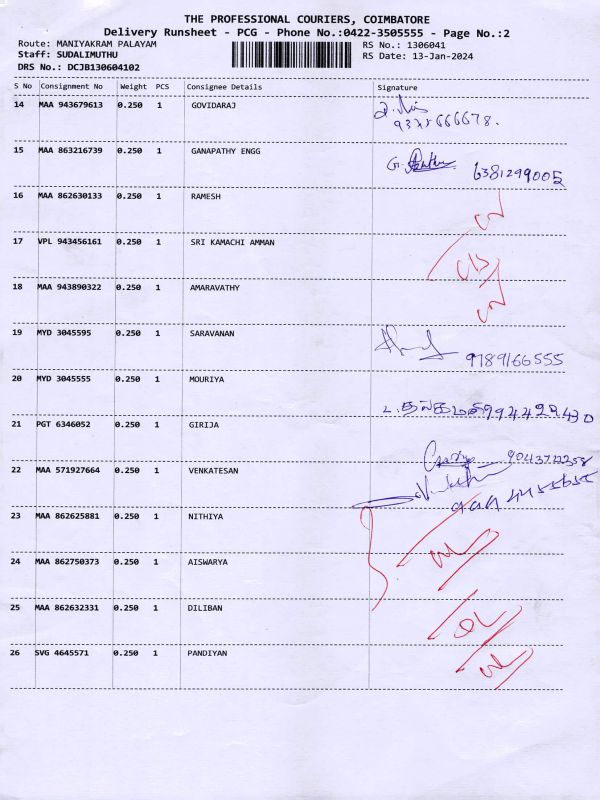 THE PROFESSIONAL COURIERS, COIMBATORE
Delivery Runsheet - PCG - Phone No.:0422-3505555 - Page No.:2
Route: MANIYAKRAM PALAYAM RS No.: 1306041
Staff: SUDALIMUTHU RS Date: 13-Jan-2024
DRS No.: DCJB130604102
S No Consignment No Weight PCS Consignee Details Signature
14 MAA 943679613 0.250 1 GOVIDARAJ
15 MAA 863216739 0.250 1 GANAPATHY ENGG 6381299005
16 MAA 862630133 0.250 1 RAMESH
17 VPL 943456161 0.250 1 SRI KAMACHI AMMAN
18 MAA 943890322 0.250 1 AMARAVATHY
19 MYD 3045595 0.250 1 SARAVANAN 9789166555
20 MYD 3045555 0.250 1 MOURIYA
21 PGT 6346052 0.250 1 GIRIJA
22 MAA 571927664 0.250 1 VENKATESAN
23 MAA 862625881 0.250 1 NITHIYA
24 MAA 862750373 0.250 1 AISWARYA
25 MAA 862632331 0.250 1 DILIBAN
26 SVG 4645571 0.250 1 PANDIYAN